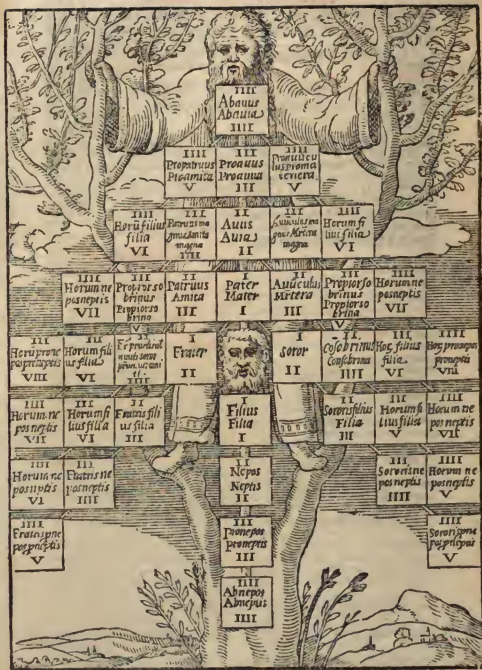 IIII
Abauus
Abauia
IIII
IIII
Propatruus
Proamita
V
III
Proauus
Proauia
III
IIII
V
IIII
Horũ filius
filia
VI
III
magna
IIII
II
Auus
Auia
II
III
magna
IIII
Horum fi
lius filia
VI
IIII
Horum ne
pos neptis
VII
III
Propior so
brinus
Propior so
brina
V
II
Patruus
Amita
III
I
Pater
Mater
I
II
Auũculus
Mr̃tera
III
III
Propior so
brinus
Propior so
brina
V
IIII
Horum ne
pos neptis
VII
IIII
VIII
III
Horum fili
us filia
VI
II
IIII
I
Frater
II
I
Soror
II
II
Cõsobrinus
Consobrina
IIII
III
filius
filia
VI
IIII
VIII
IIII
Horum ne
pos neptis
VII
III
Horum fi
lius filia
VI
II
Fratris fili
us filia
III
I
Filius
Filia
I
II
Sororis filius
Filia
III
III
Horum fi
lius filia
V
IIII
Horum ne
pos neptis
VII
IIII
Horum ne
pos neptis
VI
III
Fratris ne
pos neptis
IIII
II
Nepos
Neptis
II
III
Sororis ne
pos neptis
IIII
IIII
Horum ne
pos neptis
V
IIII
Fratris pne
pos pneptis
V
III
Pronepos
Proneptis
III
IIII
Sororis pne
pos pneptis
V
IIII
Abnepos
Abneptis
IIII